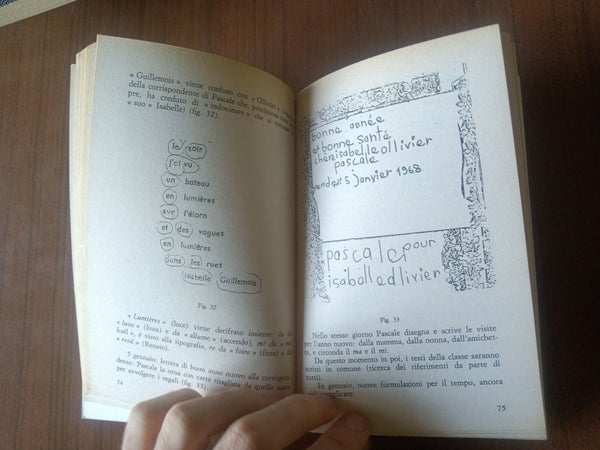 « Guillemois » viene confuso con « Ollivier »
della corrispondente di Pascale che, precipitosa
pre, ha creduto di « indovinare » che si
« suo » Isabelle) (fig. 32).
le soir
j'ci vu
un bateau
en lumières
sur l'élorn
et des vagues
en lumières
dans les rues
isabelle Guillemois
Fig. 32
« Lumières » (luce) viene decifrato insieme: lu da
« lune » (luna) e da « allume » (accendo), mi da «
kaël », è visto alla tipografia, re da « foire » (fiera) e da
« rené » (Renato).
5 gennaio: lettera di buon anno nuovo alla corrispon-
dente: Pascale la orna con carta ritagliata da quella usata
per avvolgere i regali (fig. 33).
74
bonne année
et bonne santé
chèrisabelleollivier
pascale
vendredi 5 janvier 1968
pascale pour
isabelleollivier
Fig. 33
Nello stesso giorno Pascale disegna e scrive le visite
per l'anno nuovo: dalla mamma, dalla nonna, dall'amichet-
ta, e circonda il ma e il mi.
Da questo momento in poi, i testi della classe saranno
scritti in comune (ricerca dei riferimenti da parte di
tutti).
In gennaio, nuove formulazioni per il tempo, ancora
più complicate:
75